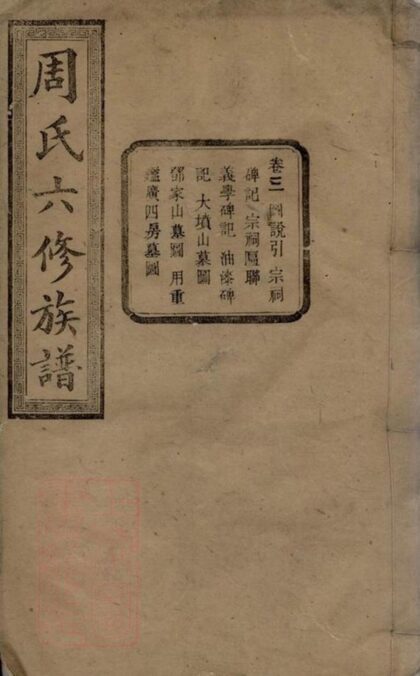 周氏六修族譜
卷三 圖說引 宗祠
碑記 宗祠匾聯
義學碑記 油漆碑
記 大墳山墓圖
鄧家山墓圖 用重
鑑廣四房墓圖